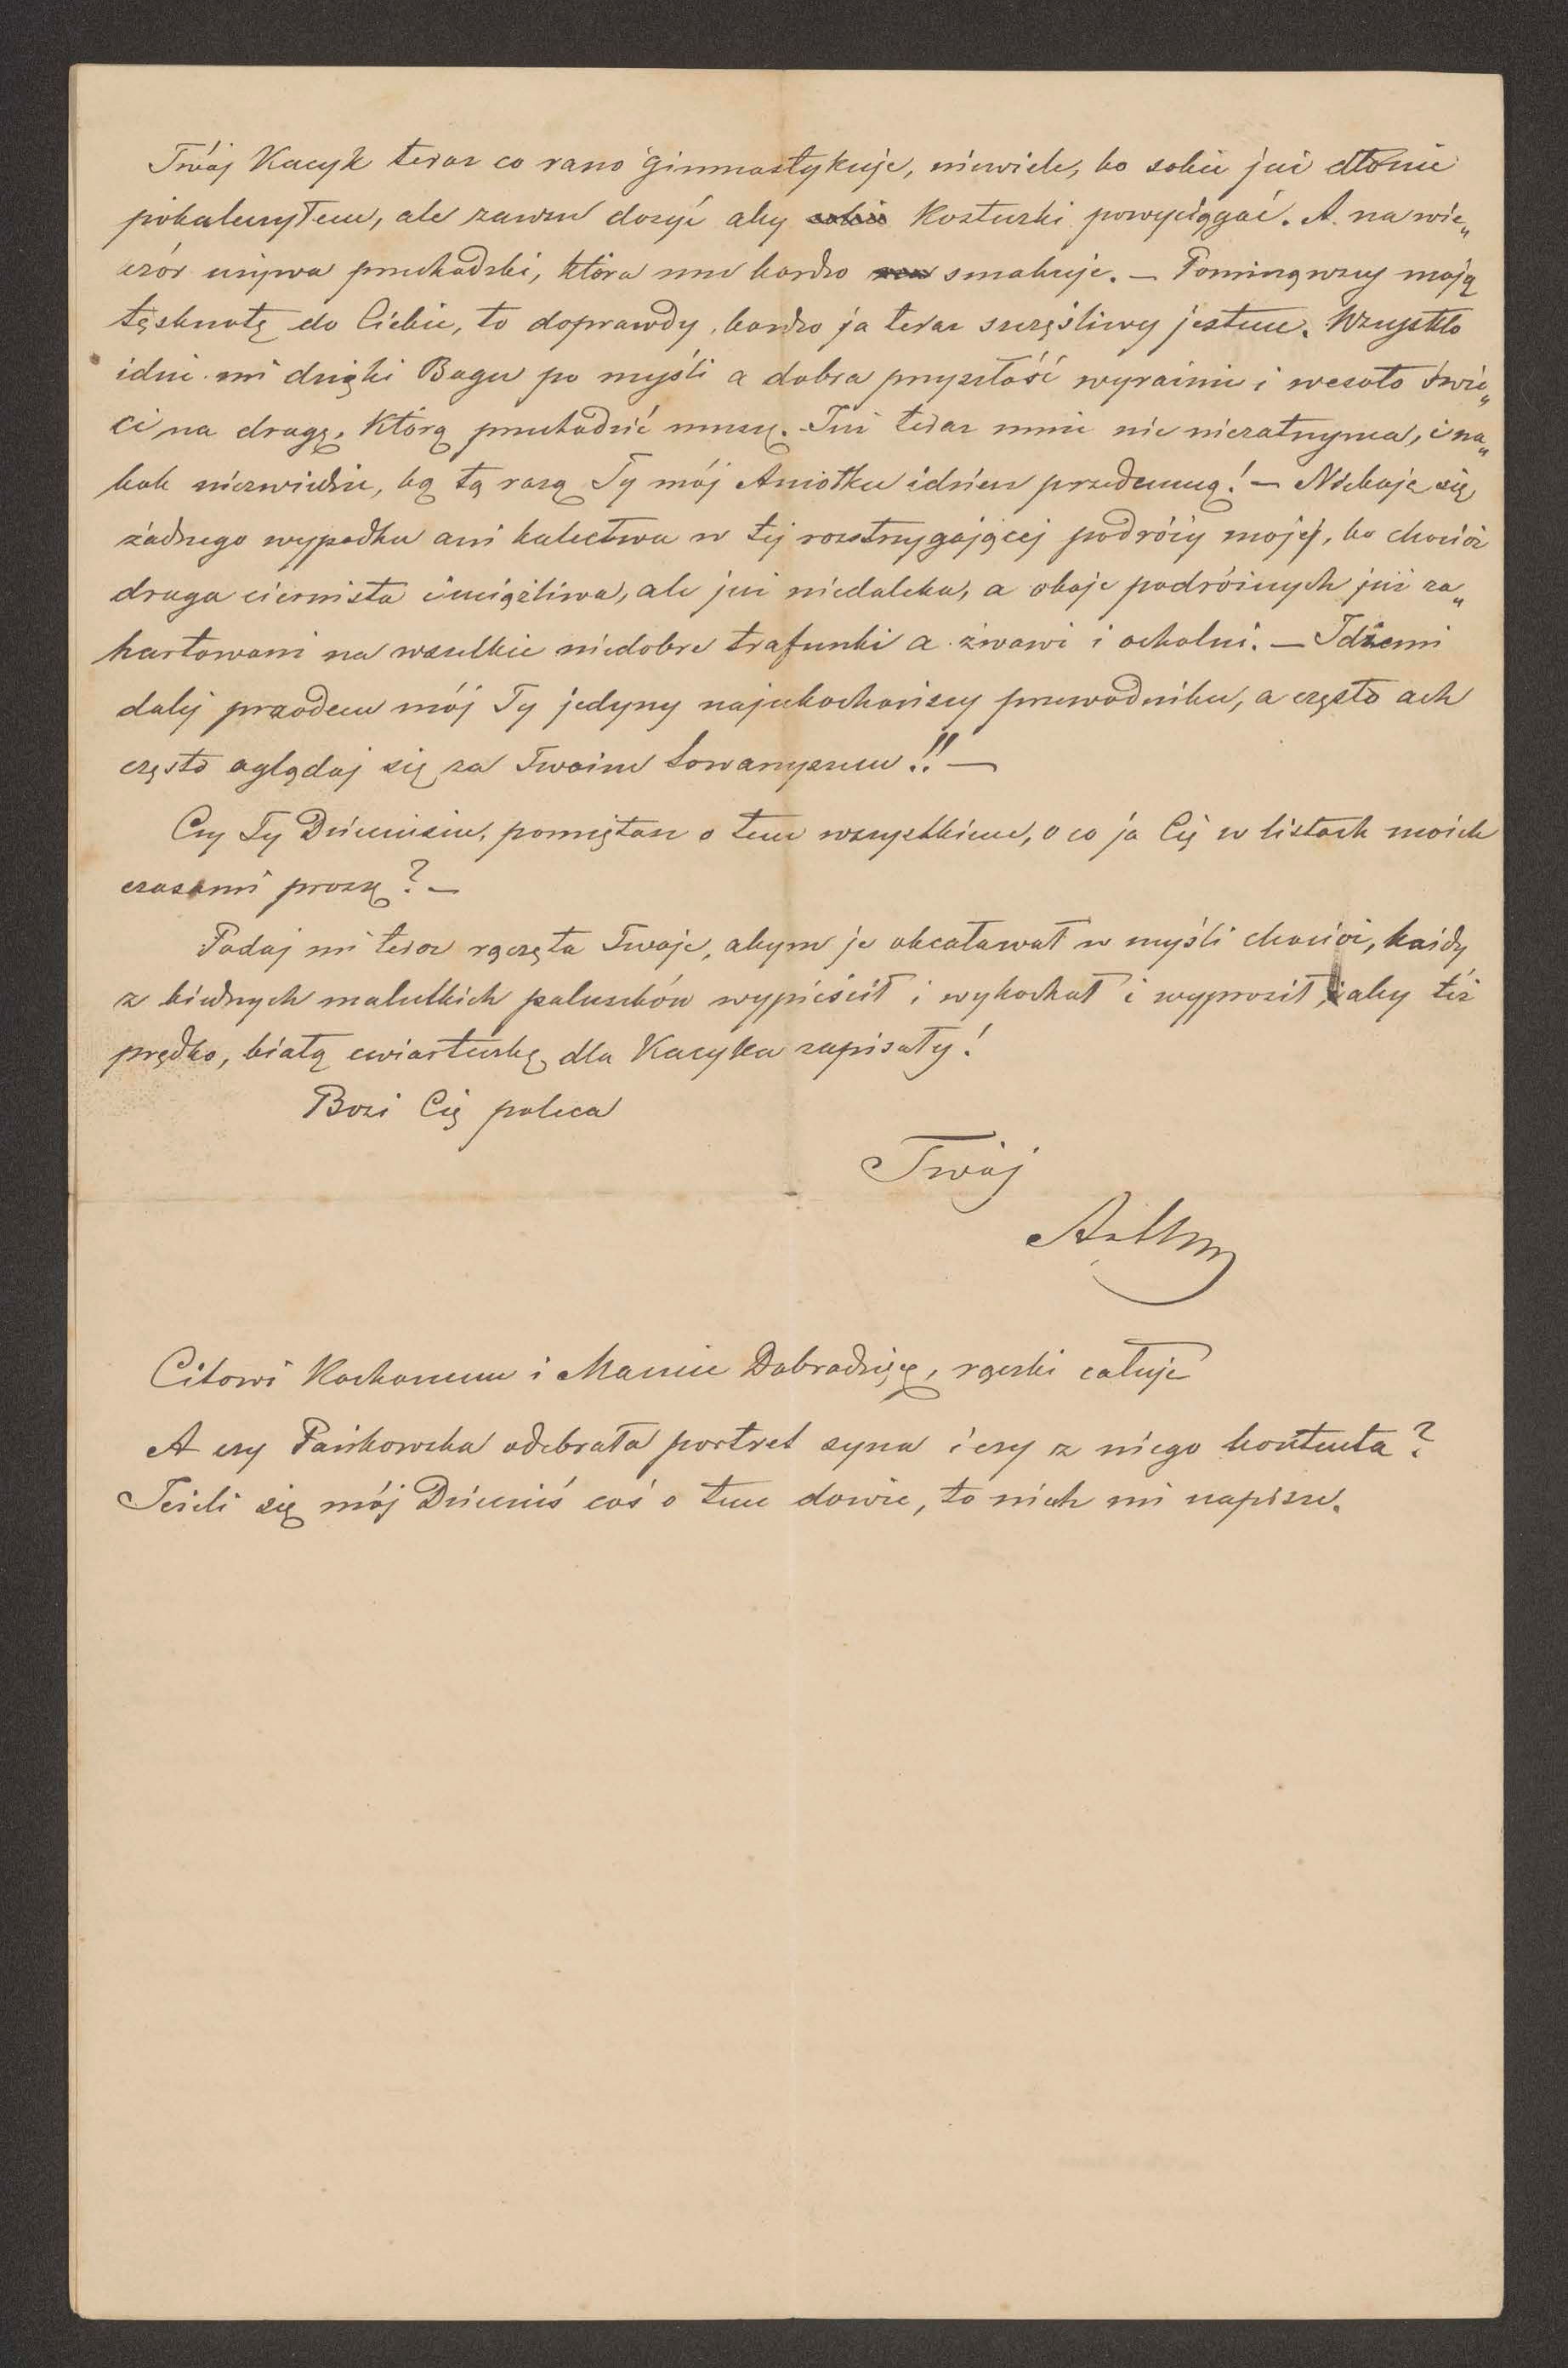 Twój Kacyk teraz co rano gimnastykuje, niewiele, bo sobie już dłonie
pokaleczyłem, ale zawsze dosyć aby sobie Kosteczki powyciągać. A na wie„
czór używa przechadzki, która mu bardzo smakuje. — Pominąwszy moją
tęsknotę do Ciebie, to doprawdy, bardzo ja teraz szczęśliwy jestem. Wszystko
idzie mi dzięki Bogu po myśli a dobra przyszłość wyraźnie i wesoło świe„
ci na drogę, Którą przechodzić muszę. Już teraz mnie nic niezatrzyma, i na„
bok niezwiedzie, bo tą razą Ty mój Aniołku idziesz przedemną! — Nieboję się
żadnego wypadku ani kalectwa w tej rozstrzygającej podróży mojej, bo chociaż
droga ciernista i uciążliwa, ale już niedaleka, a oboje podróżnych już za„
hartowani na wszelkie niedobre trafunki a żwawi i ochotni. — Idźmi
dalej przodem mój Ty jedyny najukochańszy przewodniku, a często ach
często oglądaj się za Twoim towarzyszem!! —
Czy Ty Dzieciusiu, pamiętasz o tem wszystkiem, o co ja Cię w listach moich
czasami proszę? —
Podaj mi teraz rączęta Twoje, abym je obcałował w myśli chociaż, każdy
z biednych malutkich paluszków wypieścił i wykochał i wyprosił, aby też
prędko, białą ćwiarteczkę dla Kacyka zapisały!
Bozi Cię poleca
Twój
Artur
Citowi Kochanemu i Mamie Dobrodziéjce, rączki całuję
A czy Pańkowska odebrała portret syna i czy z niego kontenta?
Jeżeli się mój Dzieciuś coś o tem dowie, to niech mi napisze.